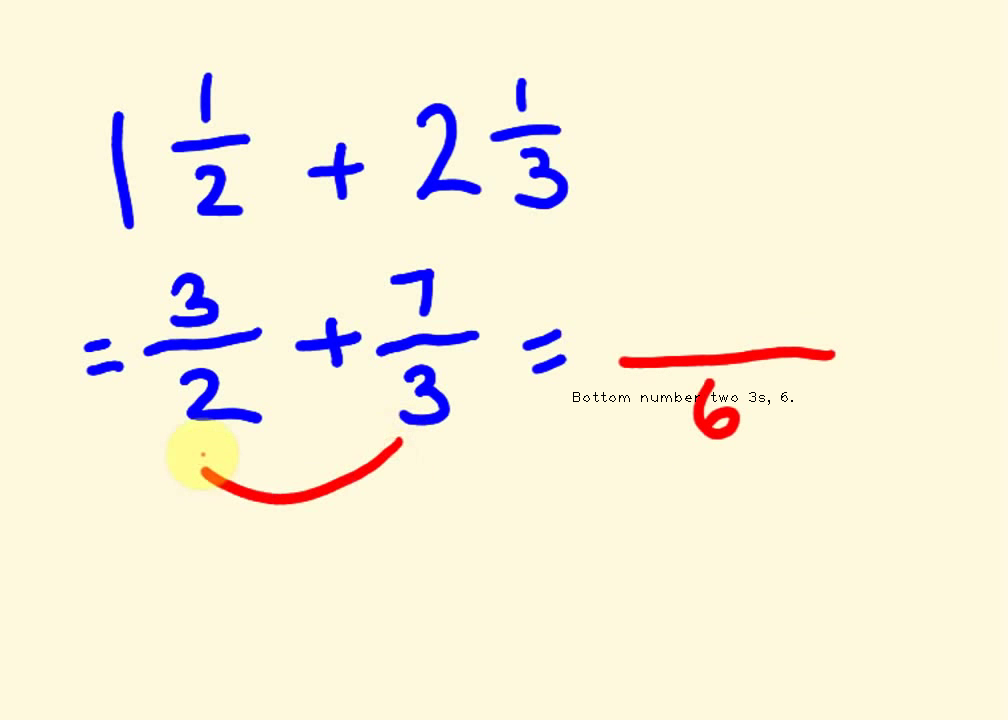 1 1/2 + 2 1/3
= 3/2 + 7/3 = /6
Bottom number two 3s, 6.